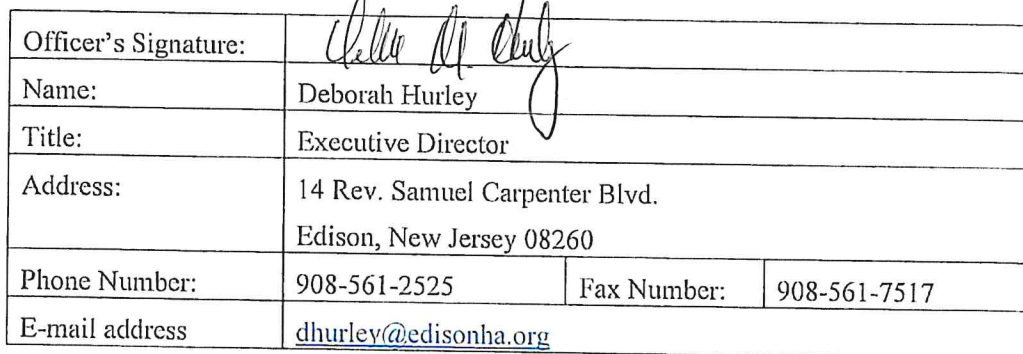 Officer's Signature:
Name: Deborah Hurley
Title: Executive Director
Address: 14 Rev. Samuel Carpenter Blvd.
Edison, New Jersey 08260
Phone Number: 908-561-2525 Fax Number: 908-561-7517
E-mail address dhurley@edisonha.org